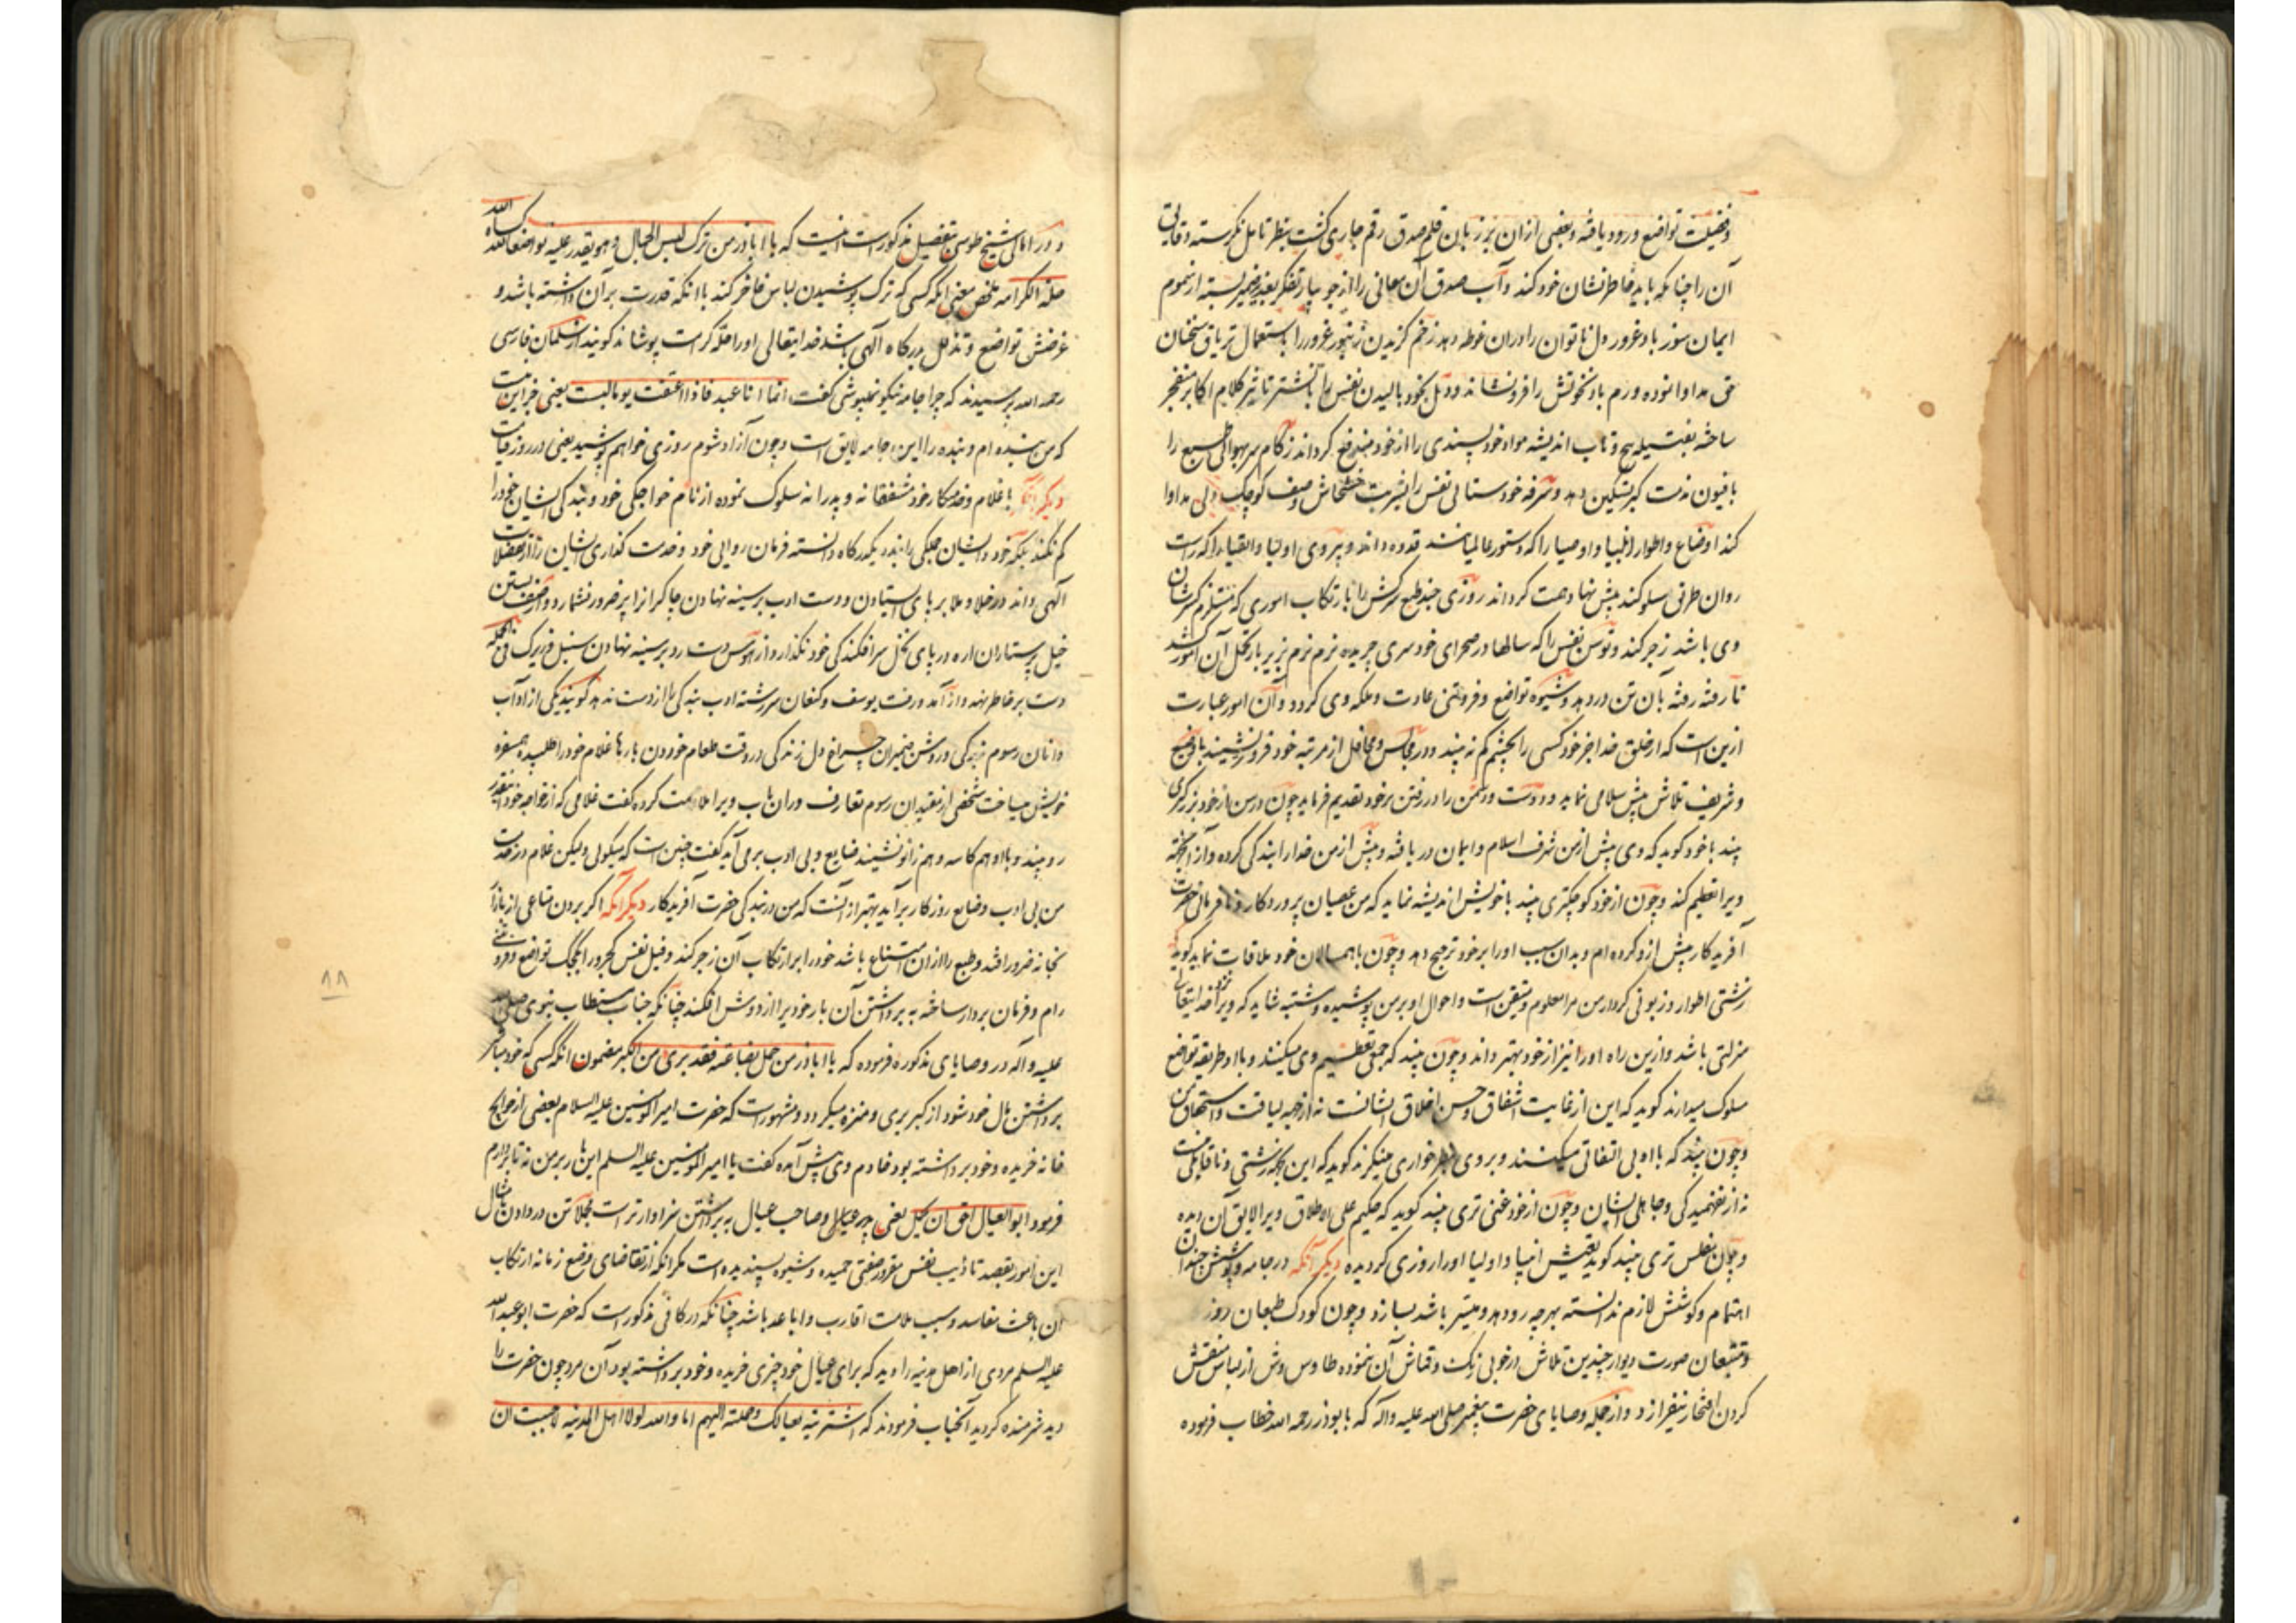 و فضیلت تواضع ورود یافته و بعضی از ان بر زبان قلم صدق رقم جاری کشت بنظر تامل نکریسته دقایق
آن را چنانکه باید خاطر نشان خود کند و آب صدق آن معانی را از جویبار تفکر بغدیر ضمیر بسته از سموم
ایمان سوز باد غرور دل ناتوان را در ان غوطه دهد زخم کزیدن زنبور غرور را باستعمال تریاق سخنان
حق مداوا نموده ورم باد نخوتش را فرونشاند و دمل بخود بالیدن نفس را با نشتر تاثیر کلام اکابر منفجر
ساخته بفتیله پیچ و تاب اندیشه مواد خود پسندی را از خود مندفع کرداند زکام سر بهوائی طبع را
بافیون مذمت کبر تسکین دهد و سرفه خودستائی نفس را بشربت خشخاش وصف کوچک دلی مداوا
کند اوضاع و اطوار انبیا و اوصیا را که دستور عالمیانند قدوه داند و پیروی اولیا و اتقیا را که راست
روان طریق سلوکند پیش نهاد همت کرداند روزی چند طبع سرکش را بارتکاب اموری که مستلزم کسر شان
وی باشد زجر کند و توسن نفس را که سالها در صحرای خودسری چریده نرم نرم بزیر بار تحمل آن امور کشد
تا رفته رفته بآن تن دردهد و شیوه تواضع و فروتنی عادت و ملکه وی کردد و آن امور عبارت
ازین است که از خلق خدا جز خود کسی را بچشم کم نه بیند و در مجالس و محافل از مرتبه خود فروتر نشیند با وضیع
و شریف تلاش پیش سلامی نماید و دوست و دشمن را در رفتن بر خود تقدیم فرماید چون در سن از خود بزرکتری
بیند با خود کوید که وی پیش از من شرف اسلام و ایمان دریافته و پیش از من خدا را بندکی کرده و از اینجهة
ویرا تعظیم کند و چون از خود کوچکتری بیند با خویش اندیشه نماید که من عصیان پروردکار و نافرمانی حضرت
آفریدکار پیش ازو کرده ام و بدان سبب او را بر خود ترجیح دهد و چون با همسالان خود ملاقات نماید کوید
زشتی اطوار و زبونی کردار من مرا معلوم و متیقن است و احوال او بر من پوشیده و مشتبه شاید که ویرا نزد خدایتعالی
منزلتی باشد و ازین راه او را نیز از خود بهتر داند و چون بیند که جمعی تعظیم وی میکنند و با او طریقه تواضع
سلوک میدارند کوید که این از غایت اشفاق و حسن اخلاق ایشانست نه از جهة لیاقت و استحقاق من
و چون بیند که با او بی التفاتی میکنند و بر وی بنظر خواری مینکرند کوید که این بجهة زشتی و ناقابلی منست
نه از نفهمیدکی و جاهلی ایشان و چون از خود غنی تری بیند کوید که حکیم علی الاطلاق ویرا لایق آن دیده
و چون مفلس تری بیند کوید تعیش انبیا و اولیا او را روزی کردیده دیکر آنکه در جامه و پوشش چندان
اهتمام و کوشش لازم ندانسته بهرچه رو دهد و میسر باشد بسازد و چون کودک طبعان روز
و متتبعان صورت دیوار چندین تلاش در خوبی رنک و قماش آن ننموده طاوس وش از لباس منقش
کردن افتخار نیفرازد و از جمله وصایای حضرت پیغمبر صلی الله علیه و آله که بابوذر رحمه الله خطاب فرموده
و در امالی شیخ طوسی بتفصیل مذکور است اینست که یا اباذر من ترک لبس الجمال و هو یقدر علیه تواضعا لله کساه الله
حلة الکرامه ملخص معنی آنکه کسی که ترک پوشیدن لباس فاخر کند با آنکه قدرت بر آن داشته باشد و
غرضش تواضع و تذلل بدرکاه آلهی باشد خدایتعالی او را حله کرامت پوشاند کویند از سلمان فارسی
رحمه الله پرسیدند که چرا جامه نیکو نمیپوشی کفت انما انا عبد فاذا اعتقت یوما لبست یعنی جز این نیست
که من بنده ام و بنده را این جامه لایق است و چون آزاد شوم روزی خواهم پوشید یعنی در روز قیامت
دیکر آنکه با غلام و خدمتکار خود مشفقانه و پدرانه سلوک نموده از نام خواجکی خود و بندکی ایشان خود را
کم نکند بلکه خود و ایشان جملکی را بنده یکدرکاه دانسته فرمان روائی خود و خدمت کذاری ایشان را از تفضلات
آلهی داند در خلا و ملا بر پای ایستادن و دست ادب بر سینه نهادن چاکران را پر ضرور نشمارد و از صف بستن
خیل پرستاران اره در پای نخل سرافکندکی خود نکذارد و از هوس دست رد بر سینه نهادن سنبل فریزک فی الجمله
دست بر خاطر نهد و از آمد و رفت یوسف و کنعان سررشته ادب بندکی را از دست ندهد کویند یکی از آداب
دانان رسوم بندکی و روشن ضمیران چراغ دل زندکی در وقت طعام خوردن بارها غلام خود را طلبیده همسفره
خویش میساخت شخصی از مقیدان رسوم تعارف در ان باب ویرا ملامت کرده کفت غلامی که از خواجه خود اینقدر
رو بیند و با او هم کاسه و هم زانو نشیند ضایع و بی ادب برمی آید کفت چنین است که میکوئی ولیکن غلام در خدمت
من بی ادب و ضایع روزکار برآید بهتر از آنست که من در بندکی حضرت آفریدکار دیکر آنکه اکر بردن متاعی از بازار
بخانه ضرور افتد و طبع را از ان امتناع باشد خود را بر ارتکاب آن زجر کند و فیل نفس کجرو را بکجک تواضع و فروتنی
رام و فرمان بردار ساخته به برداشتن آن بار خودیرا از دوش افکند چنانکه جناب مستطاب نبوی صلی الله
علیه و آله در وصایای مذکوره فرموده که یا اباذر من حمل بضاعته فقد بری من الکبر مضمون آنکه کسی که خود مباشر
برداشتن مال خود شود از کبر بری و منزه میکردد و مشهور است که حضرت امیرالمومنین علیه السلام بعضی از حوایج
خانه خریده و خود برداشته بود خادم وی پیش آمده کفت یا امیرالمومنین علیه السلم این بار بر من نه تا بردارم
فرمود ابو العیال احق ان یحمل یعنی پدر عیال و صاحب عیال به برداشتن سزاوارتر است مجملا تن دردادن بامثال
این امور بقصد تاذیب نفس مغرور صفتی حمیده و شیوه پسندیده است مکر آنکه از تقاضای وضع زمانه ارتکاب
ان باعث مفاسد و سبب ملامت اقارب و اباعد باشد چنانکه در کافی مذکور است که حضرت ابو عبدالله
علیه السلم مردی از اهل مدینه را دید که برای عیال خود چیزی خریده و خود برداشته بود آن مرد چون حضرت را
دید شرمنده کردید آنجناب فرمودند که اشتریته لعیالک و حملته الیهم اما والله لولا اهل المدینه لاحببت ان
۸۸